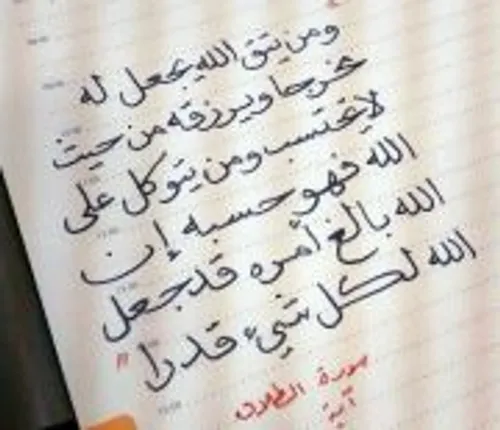 ومن يتق الله يجعل له
مخرجا ويرزقه من حيث
لا يحتسب ومن يتوكل على
الله فهو حسبه إن
الله بالغ أمره قد جعل
الله لكل شيء قدرا "
سورة الطلاق
آية